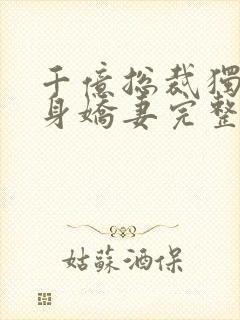 千億總裁獨
身嬌妻完整
姑蘇酒保